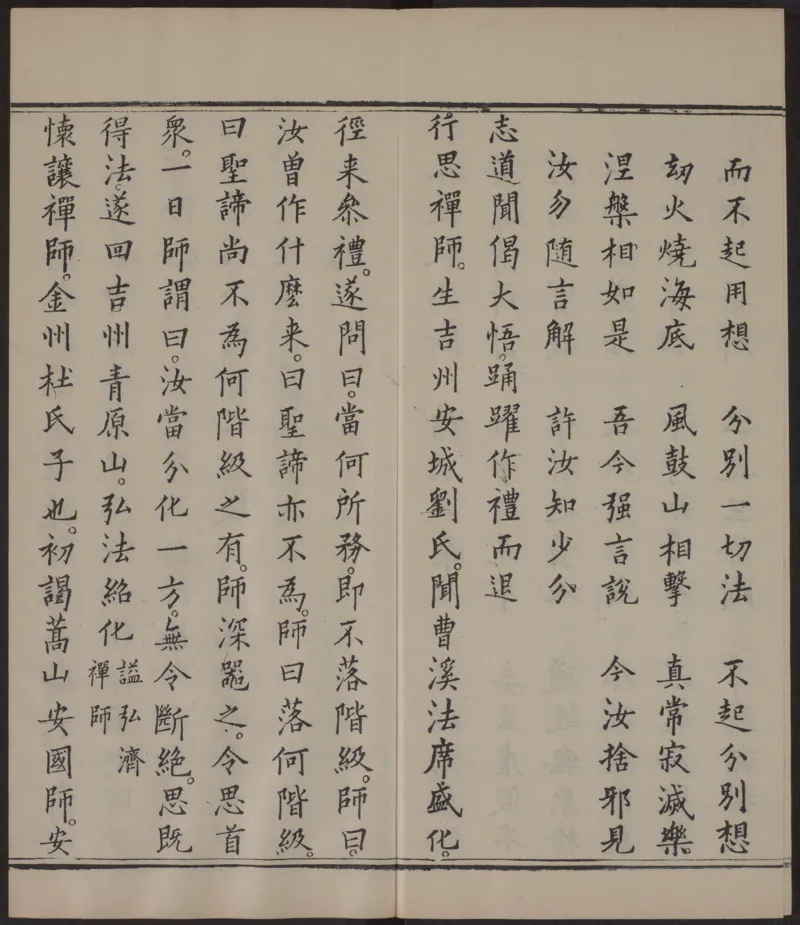 而不起用想　分別一切法　不起分別想
劫火燒海底　風鼓山相擊　真常寂滅樂
涅槃相如是　吾今强言說　今汝捨邪見
汝勿随言解　許汝知少分
志道聞偈大悟。踊躍作禮而退
行思禪師。生吉州安城劉氏。聞曹溪法席盛化。
徑来叅禮。遂問曰。當何所務。即不落階級。師曰。
汝曾作什麽来。曰聖諦亦不為。師曰落何階級。
曰聖諦尚不為何階級之有。師深噐之。令思首
衆。一日師謂曰。汝當分化一方。無令斷絶。思既
得法。遂回吉州青原山。弘法紹化謚弘濟禪師
懷讓禪師。金州杜氏子也。初謁嵩山安國師。安